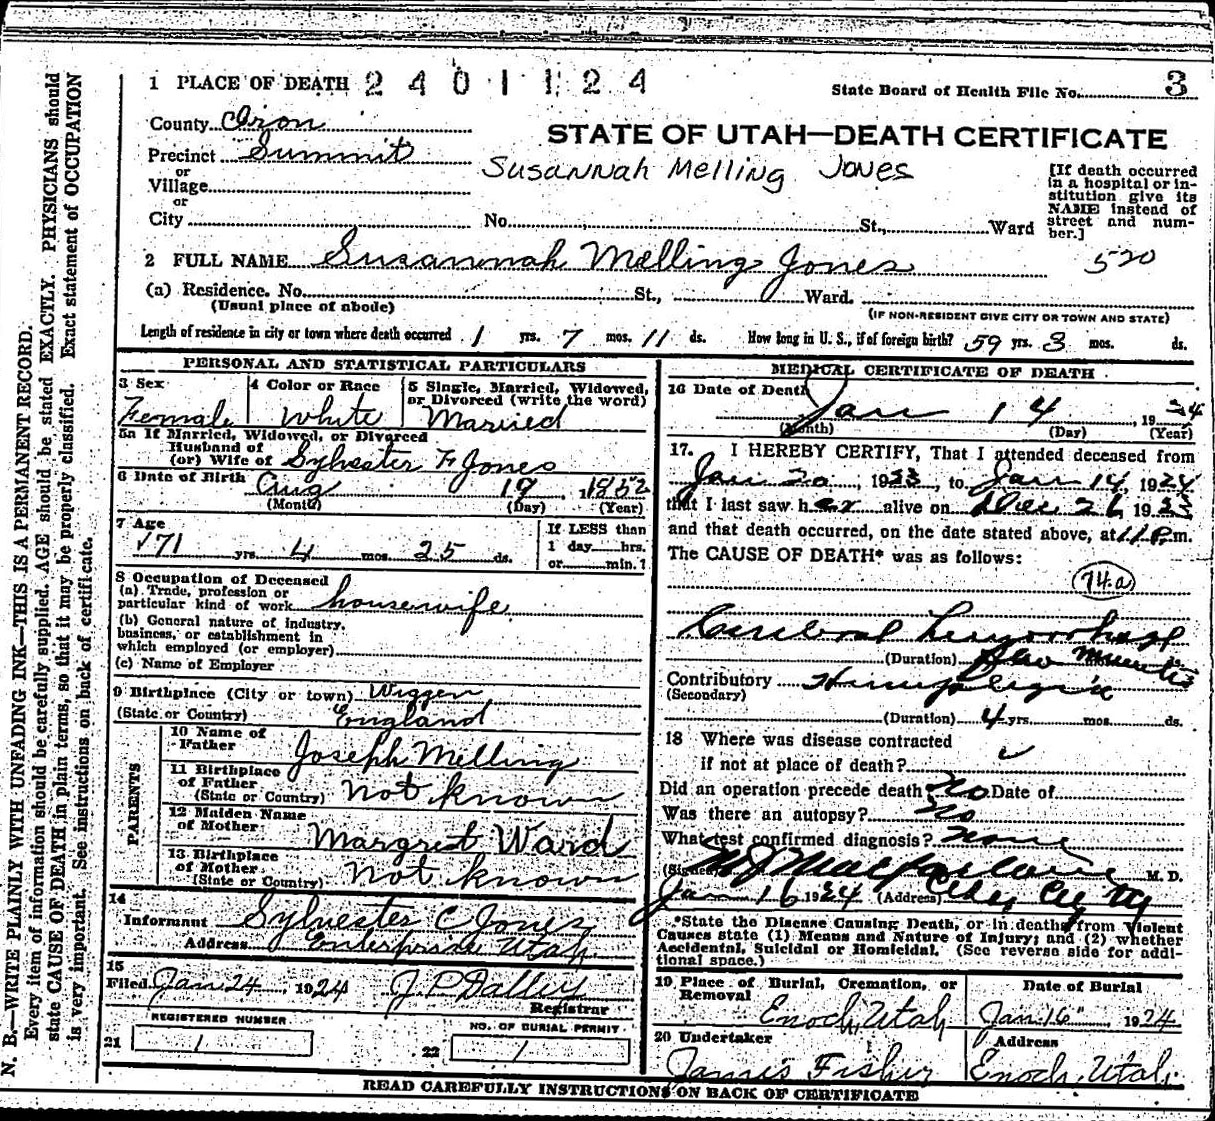 1 PLACE OF DEATH 2 4 0 1 1 2 4
State Board of Health File No. 3
County Iron
STATE OF UTAH—DEATH CERTIFICATE
Precinct Summit
Susannah Melling Jones
or
Village
or
City No. St., Ward
[If death occurred
in a hospital or in-
stitution give its
NAME instead of
street and num-
ber.]
2 FULL NAME Susannah Melling Jones
520
(a) Residence. No. St., Ward.
(Usual place of abode)
(IF NON-RESIDENT GIVE CITY OR TOWN AND STATE)
Length of residence in city or town where death occurred 1 yrs. 7 mos. 11 ds. How long in U. S., if of foreign birth? 59 yrs. 3 mos. ds.
PERSONAL AND STATISTICAL PARTICULARS
3 Sex
Female
4 Color or Race
White
5 Single, Married, Widowed,
or Divorced (write the word)
Married
5a If Married, Widowed, or Divorced
Husband of
(or) Wife of Sylvester F Jones
6 Date of Birth Aug 19, 1852
(Month) (Day) (Year)
7 Age
71 yrs. 4 mos. 25 ds.
If LESS than
1 day hrs.
or min.?
8 Occupation of Deceased
(a) Trade, profession or
particular kind of work housewife
(b) General nature of industry,
business, or establishment in
which employed (or employer)
(c) Name of Employer
9 Birthplace (City or town) Wiggen
(State or Country) England
PARENTS
10 Name of
Father Joseph Melling
11 Birthplace
of Father
(State or Country) Not known
12 Maiden Name
of Mother Margret Ward
13 Birthplace
of Mother
(State or Country) Not known
14
Informant Sylvester C Jones
Address Enterprise Utah
15
Filed Jan 24, 1924 J P Dalley
Registrar
REGISTERED NUMBER
21 1
NO. OF BURIAL PERMIT
22 1
MEDICAL CERTIFICATE OF DEATH
16 Date of Death
Jan 14, 1924
(Month) (Day) (Year)
17. I HEREBY CERTIFY, That I attended deceased from
Jan 20, 1923, to Jan 14, 1924
that I last saw her alive on Dec 26 1923
and that death occurred, on the date stated above, at 11 P. m.
The CAUSE OF DEATH* was as follows:
74.a
Cerebral Hemorrhage
(Duration) few minutes
Contributory Hemiplegia
(Secondary)
(Duration) 4 yrs. mos. ds.
18 Where was disease contracted
if not at place of death?
Did an operation precede death? No Date of
Was there an autopsy? No
What test confirmed diagnosis? None
(Signed) M J Macfarlane M. D.
Jan 16 1924 (Address) Cedar City Ut
*State the Disease Causing Death, or in deaths from Violent
Causes state (1) Means and Nature of Injury; and (2) whether
Accidental, Suicidal or Homicidal. (See reverse side for addi-
tional space.)
19 Place of Burial, Cremation, or
Removal
Enoch, Utah
Date of Burial
Jan 16 1924
20 Undertaker
James Fisher
Address
Enoch, Utah.
READ CAREFULLY INSTRUCTIONS ON BACK OF CERTIFICATE
N. B.—WRITE PLAINLY WITH UNFADING INK—THIS IS A PERMANENT RECORD.
Every item of information should be carefully supplied. AGE should be stated EXACTLY. PHYSICIANS should
state CAUSE OF DEATH in plain terms, so that it may be properly classified. Exact statement of OCCUPATION
is very important. See instructions on back of certificate.